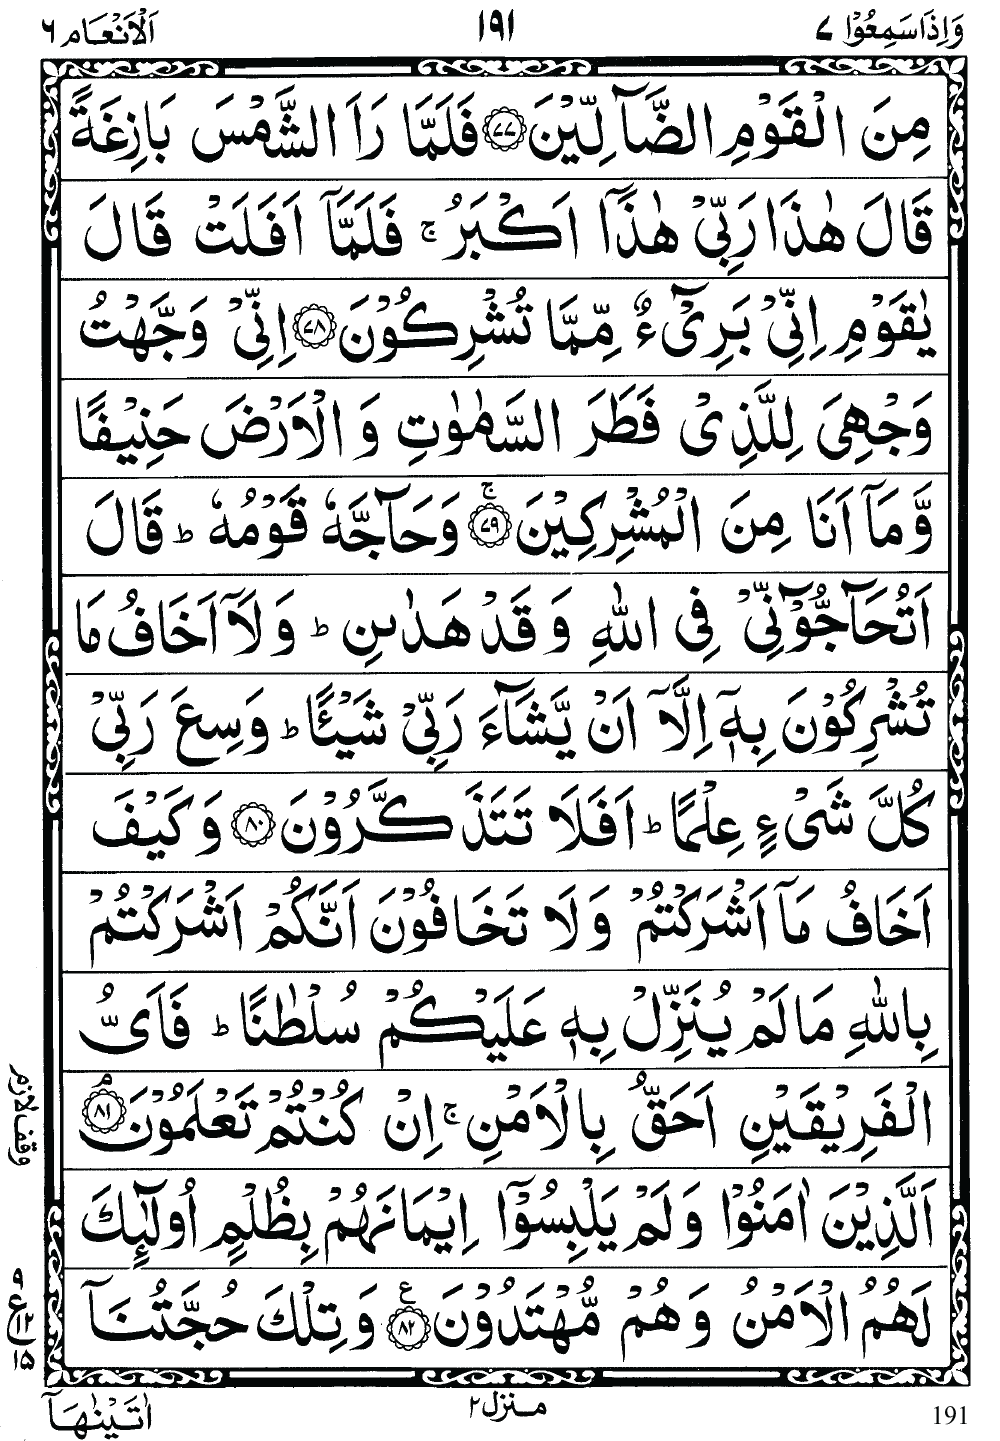 وَاِذَاسَمِعُوْا ۷
۱۹۱
اَلْاَنْعَام ۶
مِنَ الْقَوْمِ الضَّآلِّيْنَ ۝۷۷ فَلَمَّا رَاَ الشَّمْسَ بَازِغَةً
قَالَ هٰذَا رَبِّيْ هٰذَاۤ اَكْبَرُ ۚ فَلَمَّاۤ اَفَلَتْ قَالَ
يٰقَوْمِ اِنِّيْ بَرِيْٓءٌ مِّمَّا تُشْرِكُوْنَ ۝۷۸ اِنِّيْ وَجَّهْتُ
وَجْهِيَ لِلَّذِيْ فَطَرَ السَّمٰوٰتِ وَ الْاَرْضَ حَنِيْفًا
وَّ مَاۤ اَنَا مِنَ الْمُشْرِكِيْنَ ۝۷۹ۚ وَ حَآجَّهٗ قَوْمُهٗ ؕ قَالَ
اَتُحَآجُّوْٓنِّيْ فِي اللّٰهِ وَ قَدْ هَدٰىنِ ؕ وَ لَاۤ اَخَافُ مَا
تُشْرِكُوْنَ بِهٖۤ اِلَّاۤ اَنْ يَّشَآءَ رَبِّيْ شَيْـًٔا ؕ وَسِعَ رَبِّيْ
كُلَّ شَيْءٍ عِلْمًا ؕ اَفَلَا تَتَذَكَّرُوْنَ ۝۸۰ وَ كَيْفَ
اَخَافُ مَاۤ اَشْرَكْتُمْ وَ لَا تَخَافُوْنَ اَنَّكُمْ اَشْرَكْتُمْ
بِاللّٰهِ مَا لَمْ يُنَزِّلْ بِهٖ عَلَيْكُمْ سُلْطٰنًا ؕ فَاَيُّ
الْفَرِيْقَيْنِ اَحَقُّ بِالْاَمْنِ ۚ اِنْ كُنْتُمْ تَعْلَمُوْنَ ۝۸۱ۘ
وقف لازم
اَلَّذِيْنَ اٰمَنُوْا وَ لَمْ يَلْبِسُوْۤا اِيْمَانَهُمْ بِظُلْمٍ اُولٰٓئِكَ
لَهُمُ الْاَمْنُ وَ هُمْ مُّهْتَدُوْنَ ۝۸۲ ع وَ تِلْكَ حُجَّتُنَاۤ
۹
ع
۱۵
اٰتَيْنٰهَاۤ
منزل ۲
191